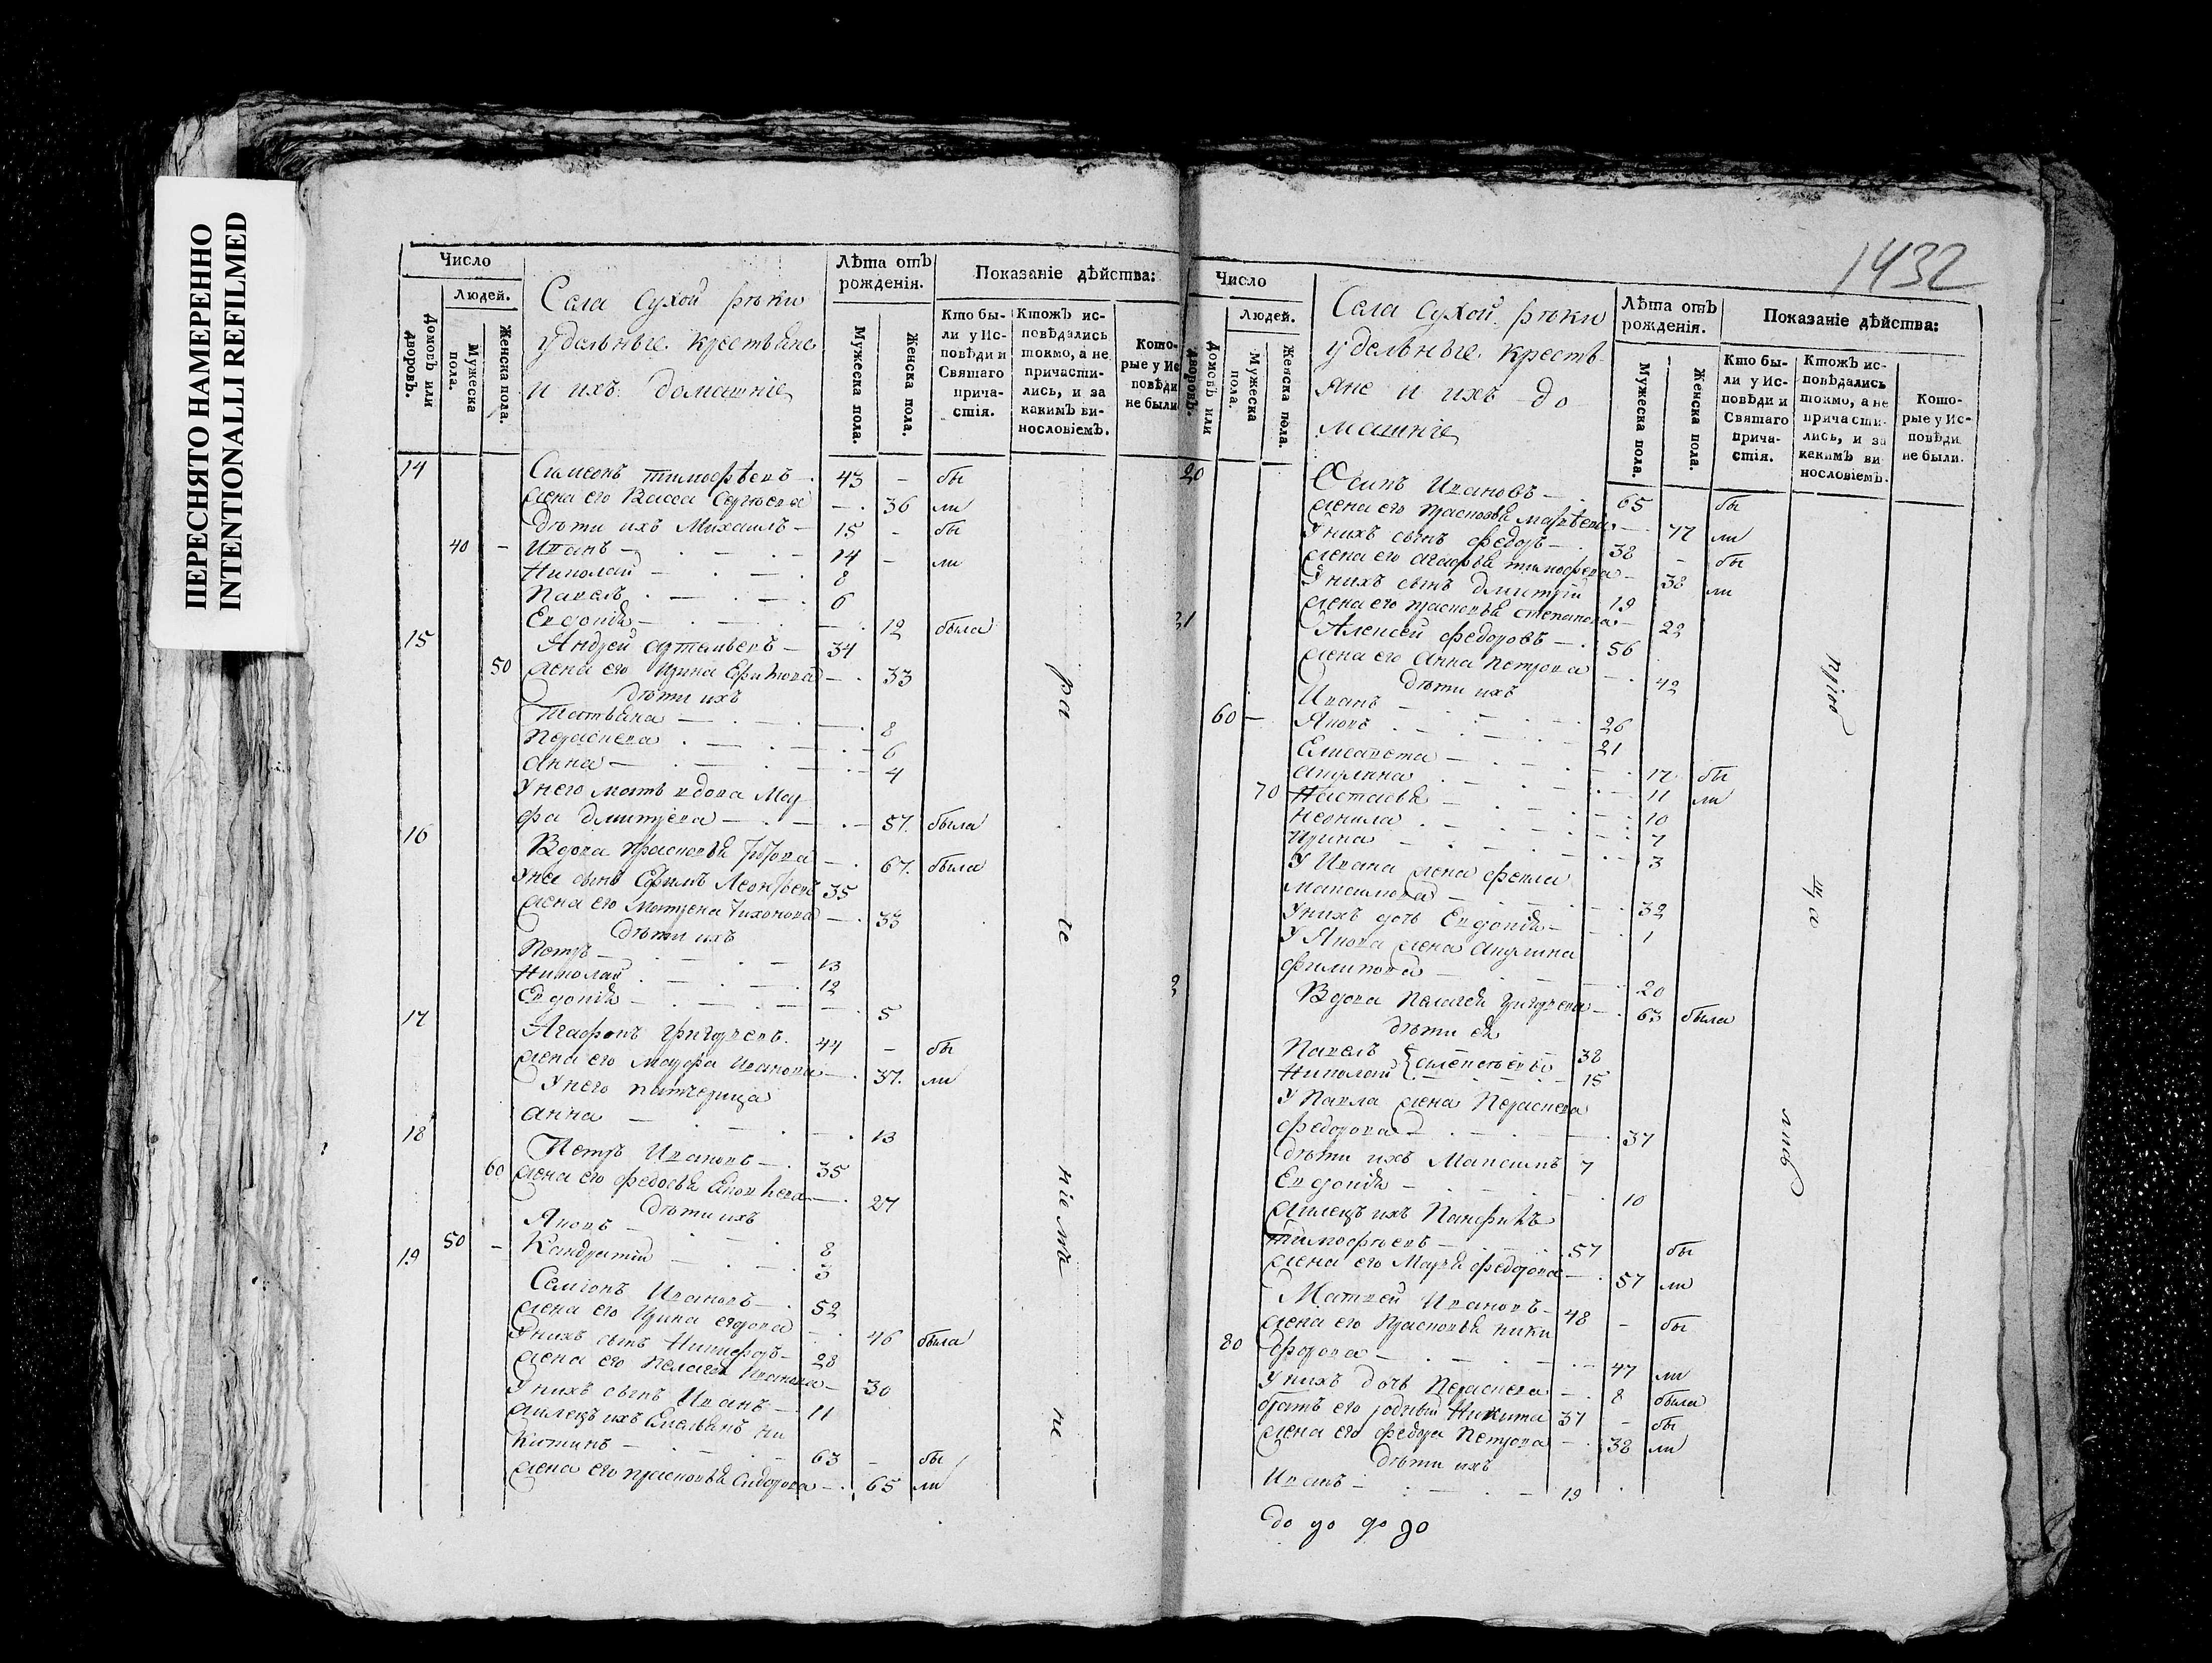 ПЕРЕСНЯТО НАМЕРЕННО
INTENTIONALLI REFILMED
1432
Число
Людей.
Домовъ или дворовъ.
Мужеска пола.
Женска пола.
Села Сухой рѣки
удельные крестьяне
и ихъ домашніе
Лѣта отъ рожденія.
Мужеска пола.
Женска пола.
Показаніе дѣйства:
Кто были у Исповѣди и Святаго причастія.
Ктожъ исповѣдались токмо, а не причастились, и за какимъ винословіемъ.
Которые у Исповѣди не были
14 Симеонъ тимофѣевъ 43 – бы
жена его Васса Сергѣева 36 ли
дѣти ихъ Михаилъ 15 – бы
40 – Иванъ 14 – ли
Николай 8
Павелъ 6
Евдокія 12 была
15 Андрей артемьевъ 34
50 жена его Ирина 33
дѣти ихъ
Татьяна 8
Параскева 6
анна 4
У него мать вдова Мар
фа дмитрева 57. была
16 Вдова Прасковья 67. была
У нея сынъ Ефимъ Леонтьевъ 35
жена его Матрена тихонова 33
дѣти ихъ
Петръ 13
Николай 12
Евдокія 5
17 Агафонъ григорьевъ. 44 – бы
жена его Марфа иванова 37. ли
У него патчерица
анна 13
18 Петръ Ивановъ 35
60 жена его федосья 27
дѣти ихъ
Яковъ 8
50 – Кондратій 3
19 Семіонъ Ивановъ 52
жена его Ирина егорова 46 была
У нихъ сынъ Никифоръ 28
жена его Пелагея Иванова 30
У нихъ сынъ Иванъ 11
ихъ Емельянъ ни
китинъ 63 – бы
жена его прасковья Сидорова 65 ли
ра
че
ніемъ
не
Число
Людей.
Домовъ или дворовъ.
Мужеска пола.
Женска пола.
Села Сухой рѣки
удельные кресть-
яне и ихъ до
машніе
Лѣта отъ рожденія.
Мужеска пола.
Женска пола.
Показаніе дѣйства:
Кто были у Исповѣди и Святаго причастія.
Ктожъ исповѣдались токмо, а не причастились, и за какимъ винословіемъ.
Которые у Исповѣди не были.
20 Осипъ Ивановъ 65 бы
жена его прасковья 77 ли
У нихъ сынъ федоръ 38 – бы
жена его агафья тимофева 38 ли
У нихъ сынъ дмитрій 19
жена его прасковья степанова 22
21 Алексей федоровъ 56
жена его анна петрова 42
дѣти ихъ
Иванъ 26
60 – Яковъ 21
Елисавета 17 бы
акулина 11 ли
70 Настасья 10
неонила 7
Ирина 3
У Ивана жена фекла
максимова 32
У нихъ дочь Евдокія 1
У Якова жена акулина
филипова 20
2 Вдова Пелагея григорева 63 была
дѣти ея
Павелъ 38
Николай 15
У Павла жена Параскева
федорова 37
дѣти ихъ Максимъ 7
Евдокія 10
ихъ Панфилъ
тимофѣевъ 57 бы
жена его Марья федорова 57 ли
Матвей Ивановъ 48 – бы
жена его Прасковья ники
80 форова 47 ли
У нихъ дочь Параскева 8 была
братъ его родный Никита 37 – бы
жена его федора Петрова 38 ли
дѣти ихъ
Иванъ 19
пріоб
ща
лись
до до до до